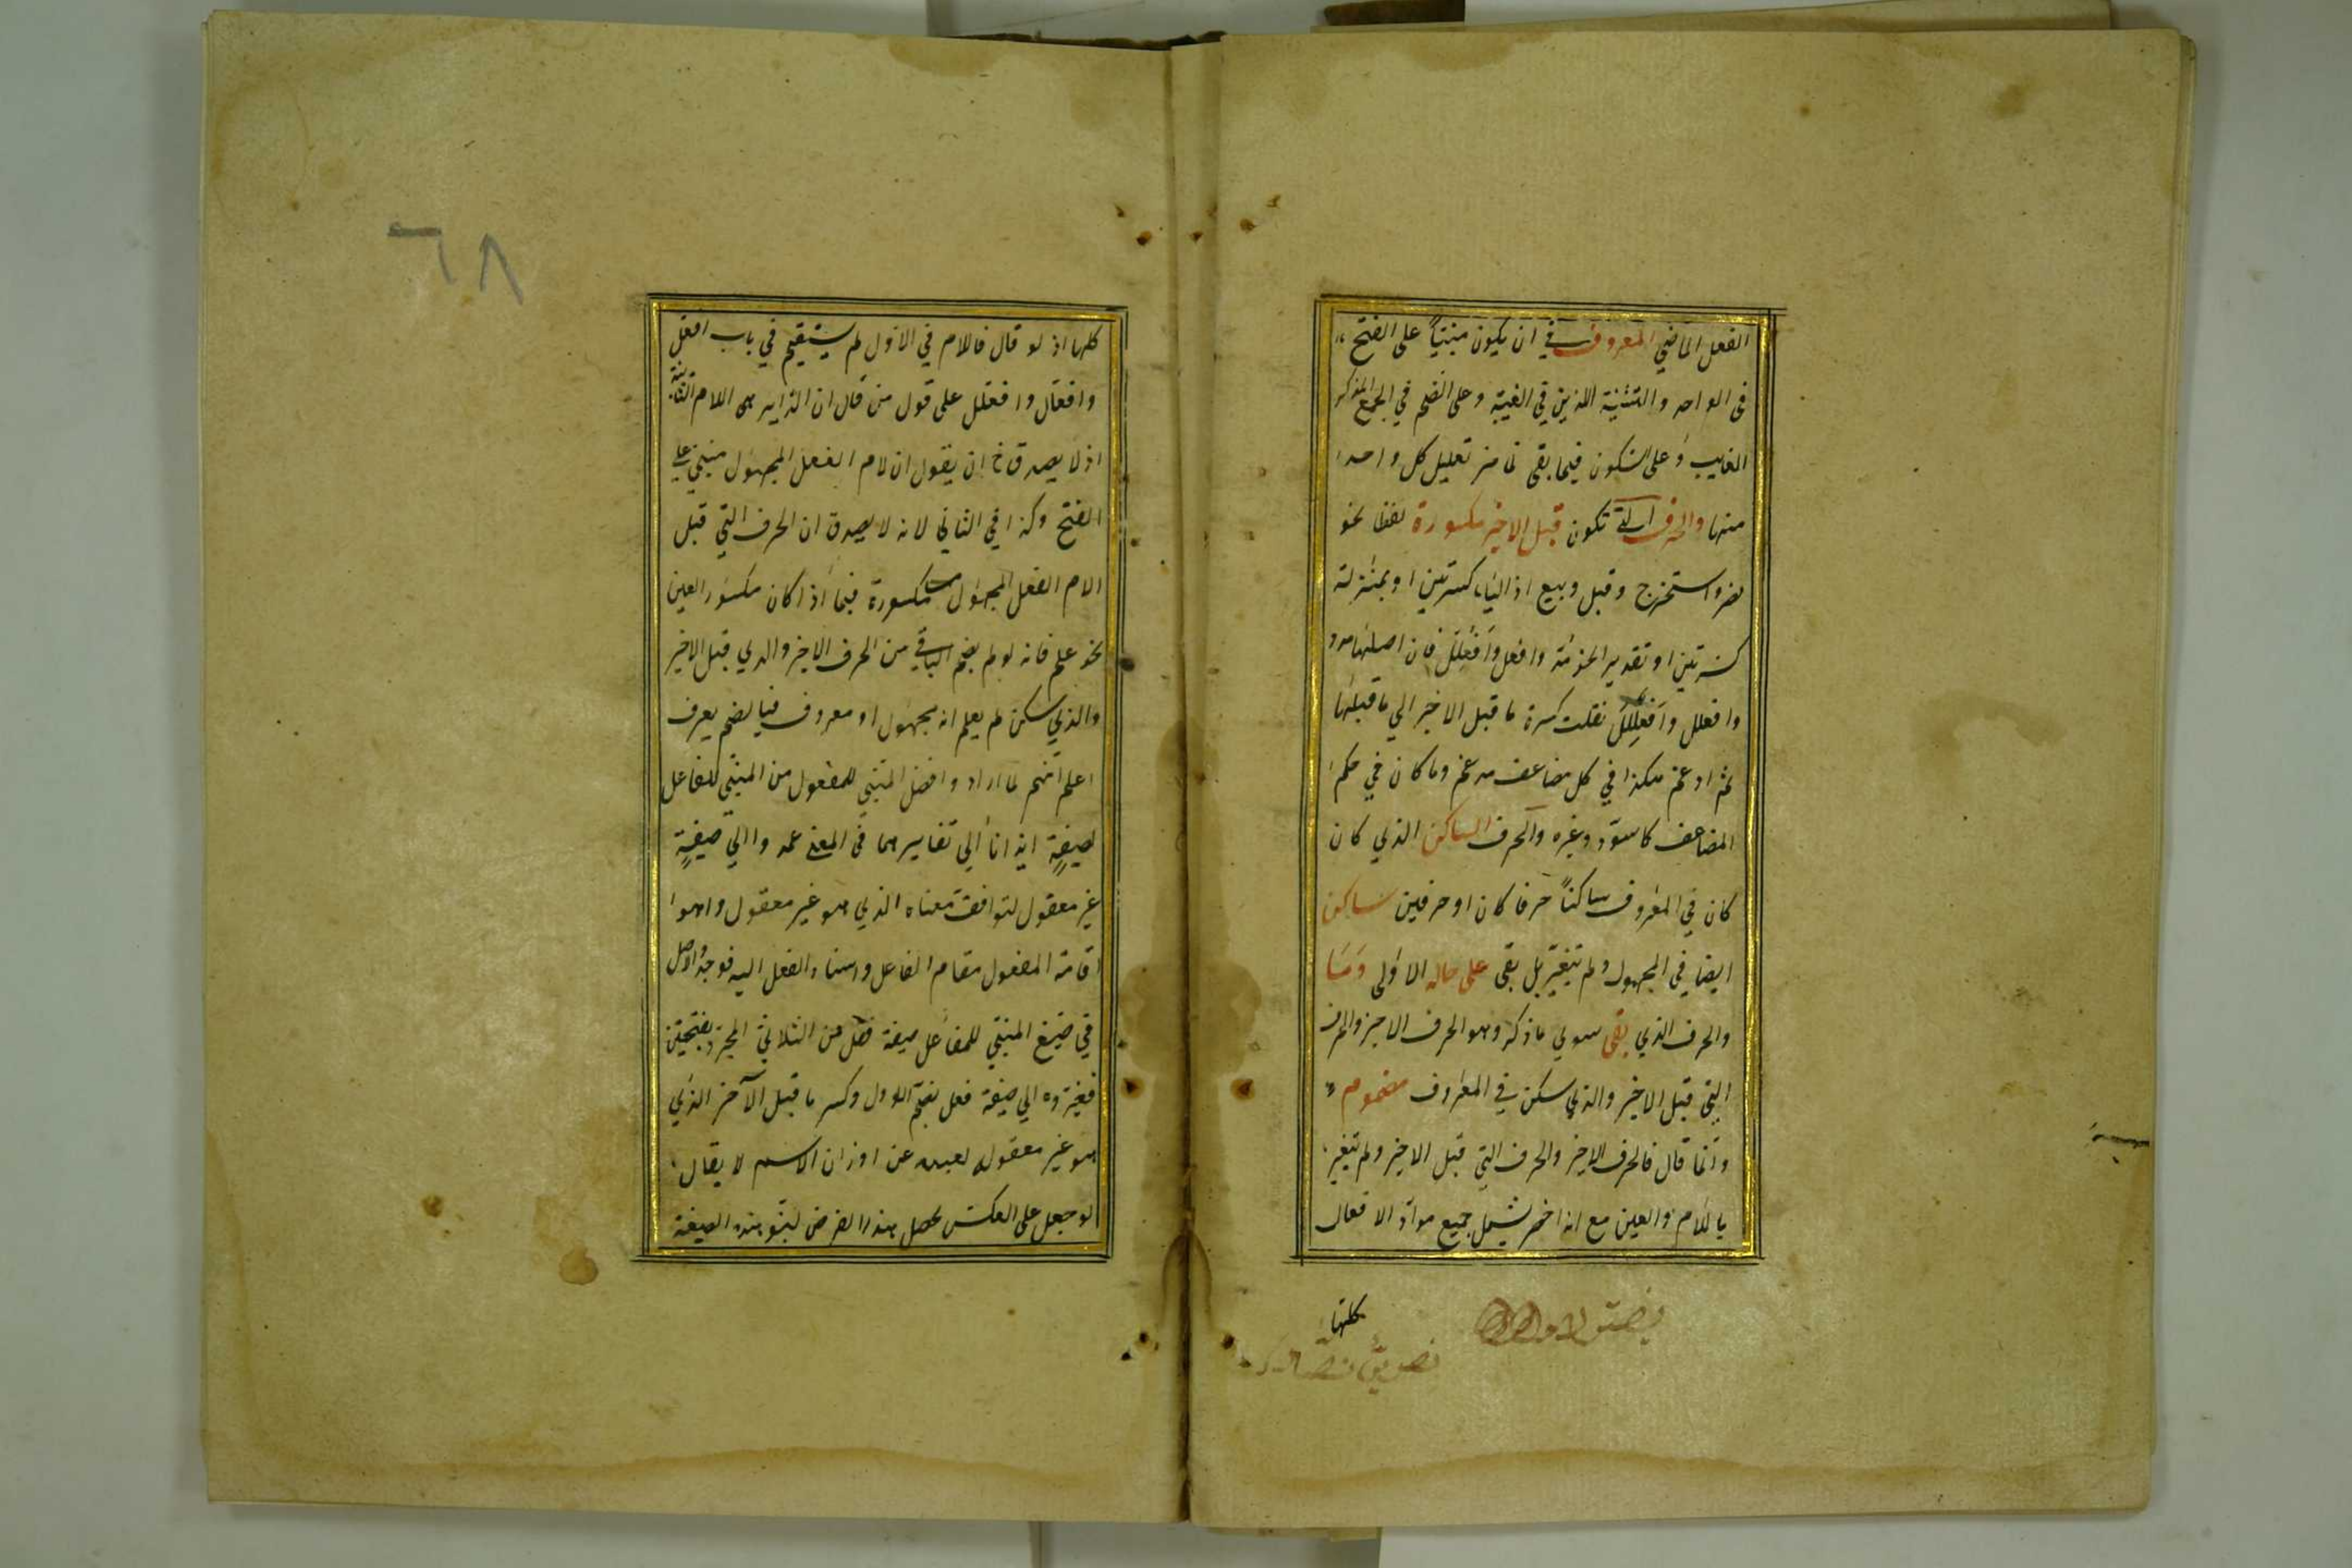 الفعل الماضي المعروف في ان يكون مبنياً على الفتح
فى الواحد والتثنية اللذين في الغيبة وعلى الضم في الجمع المذكر
الغايب وعلى السكون فيما بقى تعليل كل واحد
منها والحرف التى تكون قبل الاخير مكسورة لفظا نحو
نصر واستخرج وقيل وبيع اذ الياء كسرتين او بمنزلة
كسرتين او تقدير نحو مدّ وافعل وافعلل فان اصلها مدد
وافعلل وافعللل نقلت كسرة ما قبل الاخير الى ما قبلها
ثم ادغم هكذا في كل مضاعف مدغم وما كان في حكم
المضاعف كاسودّ وغيره والحرف الساكن الذي كان
كان في المعروف ساكناً حرفا كان او حرفين ساكن
ايضا في المجهول ولم يتغير بل بقى على حاله الاولى وما
والحرف الذي بقى سوى ما ذكر وهو الحرف الاخير والحرف
التي قبل الاخير والذي سكن في المعروف مضموم
وانما قال فالحرف الاخير والحرف التي قبل الاخير ولم يتغير
باللام والعين مع انه اخصر ليشمل جميع مواد الافعال
كلها
كلها اذ لو قال فاللام في الاول لم يستقيم في باب افعل
وافعال وافعلل على قول من قال ان الزايد هى اللام الثانية
اذ لا يصدق ح ان يقول ان لام الفعل المجهول مبني على
الفتح وكذا في الثاني لانه لا يصدق ان الحرف التي قبل
الام الفعل المجهول مكسورة فيما اذا كان مكسور العين
نحو علم فانه لو لم يضم الباقي من الحرف الاخير والذي قبل الاخير
والذي سكن لم يعلم انه مجهول او معروف فبالضم يعرف
اعلم انهم لما ارادوا فصل المبني للمفعول من المبني للفاعل
بصيغةٍ ايذانا الى تغايرهما في المعنى عمدوا الي صيغةٍ
غير معقول لتوافق معناه الذي هو غير معقول وهو
اقامة المفعول مقام الفاعل واسناد الفعل اليه فوجدوا
في صيغ المبني للفاعل صيغة فعل من الثلاثي المجرد بفتحتين
فغيروه الي صيغة فعل بضم الاول وكسر ما قبل الآخر الذي
هو غير معقول لبعده عن اوزان الاسم لا يقال
لو جعل على العكس يحصل هذا الغرض هذه الصيغة
٦٨